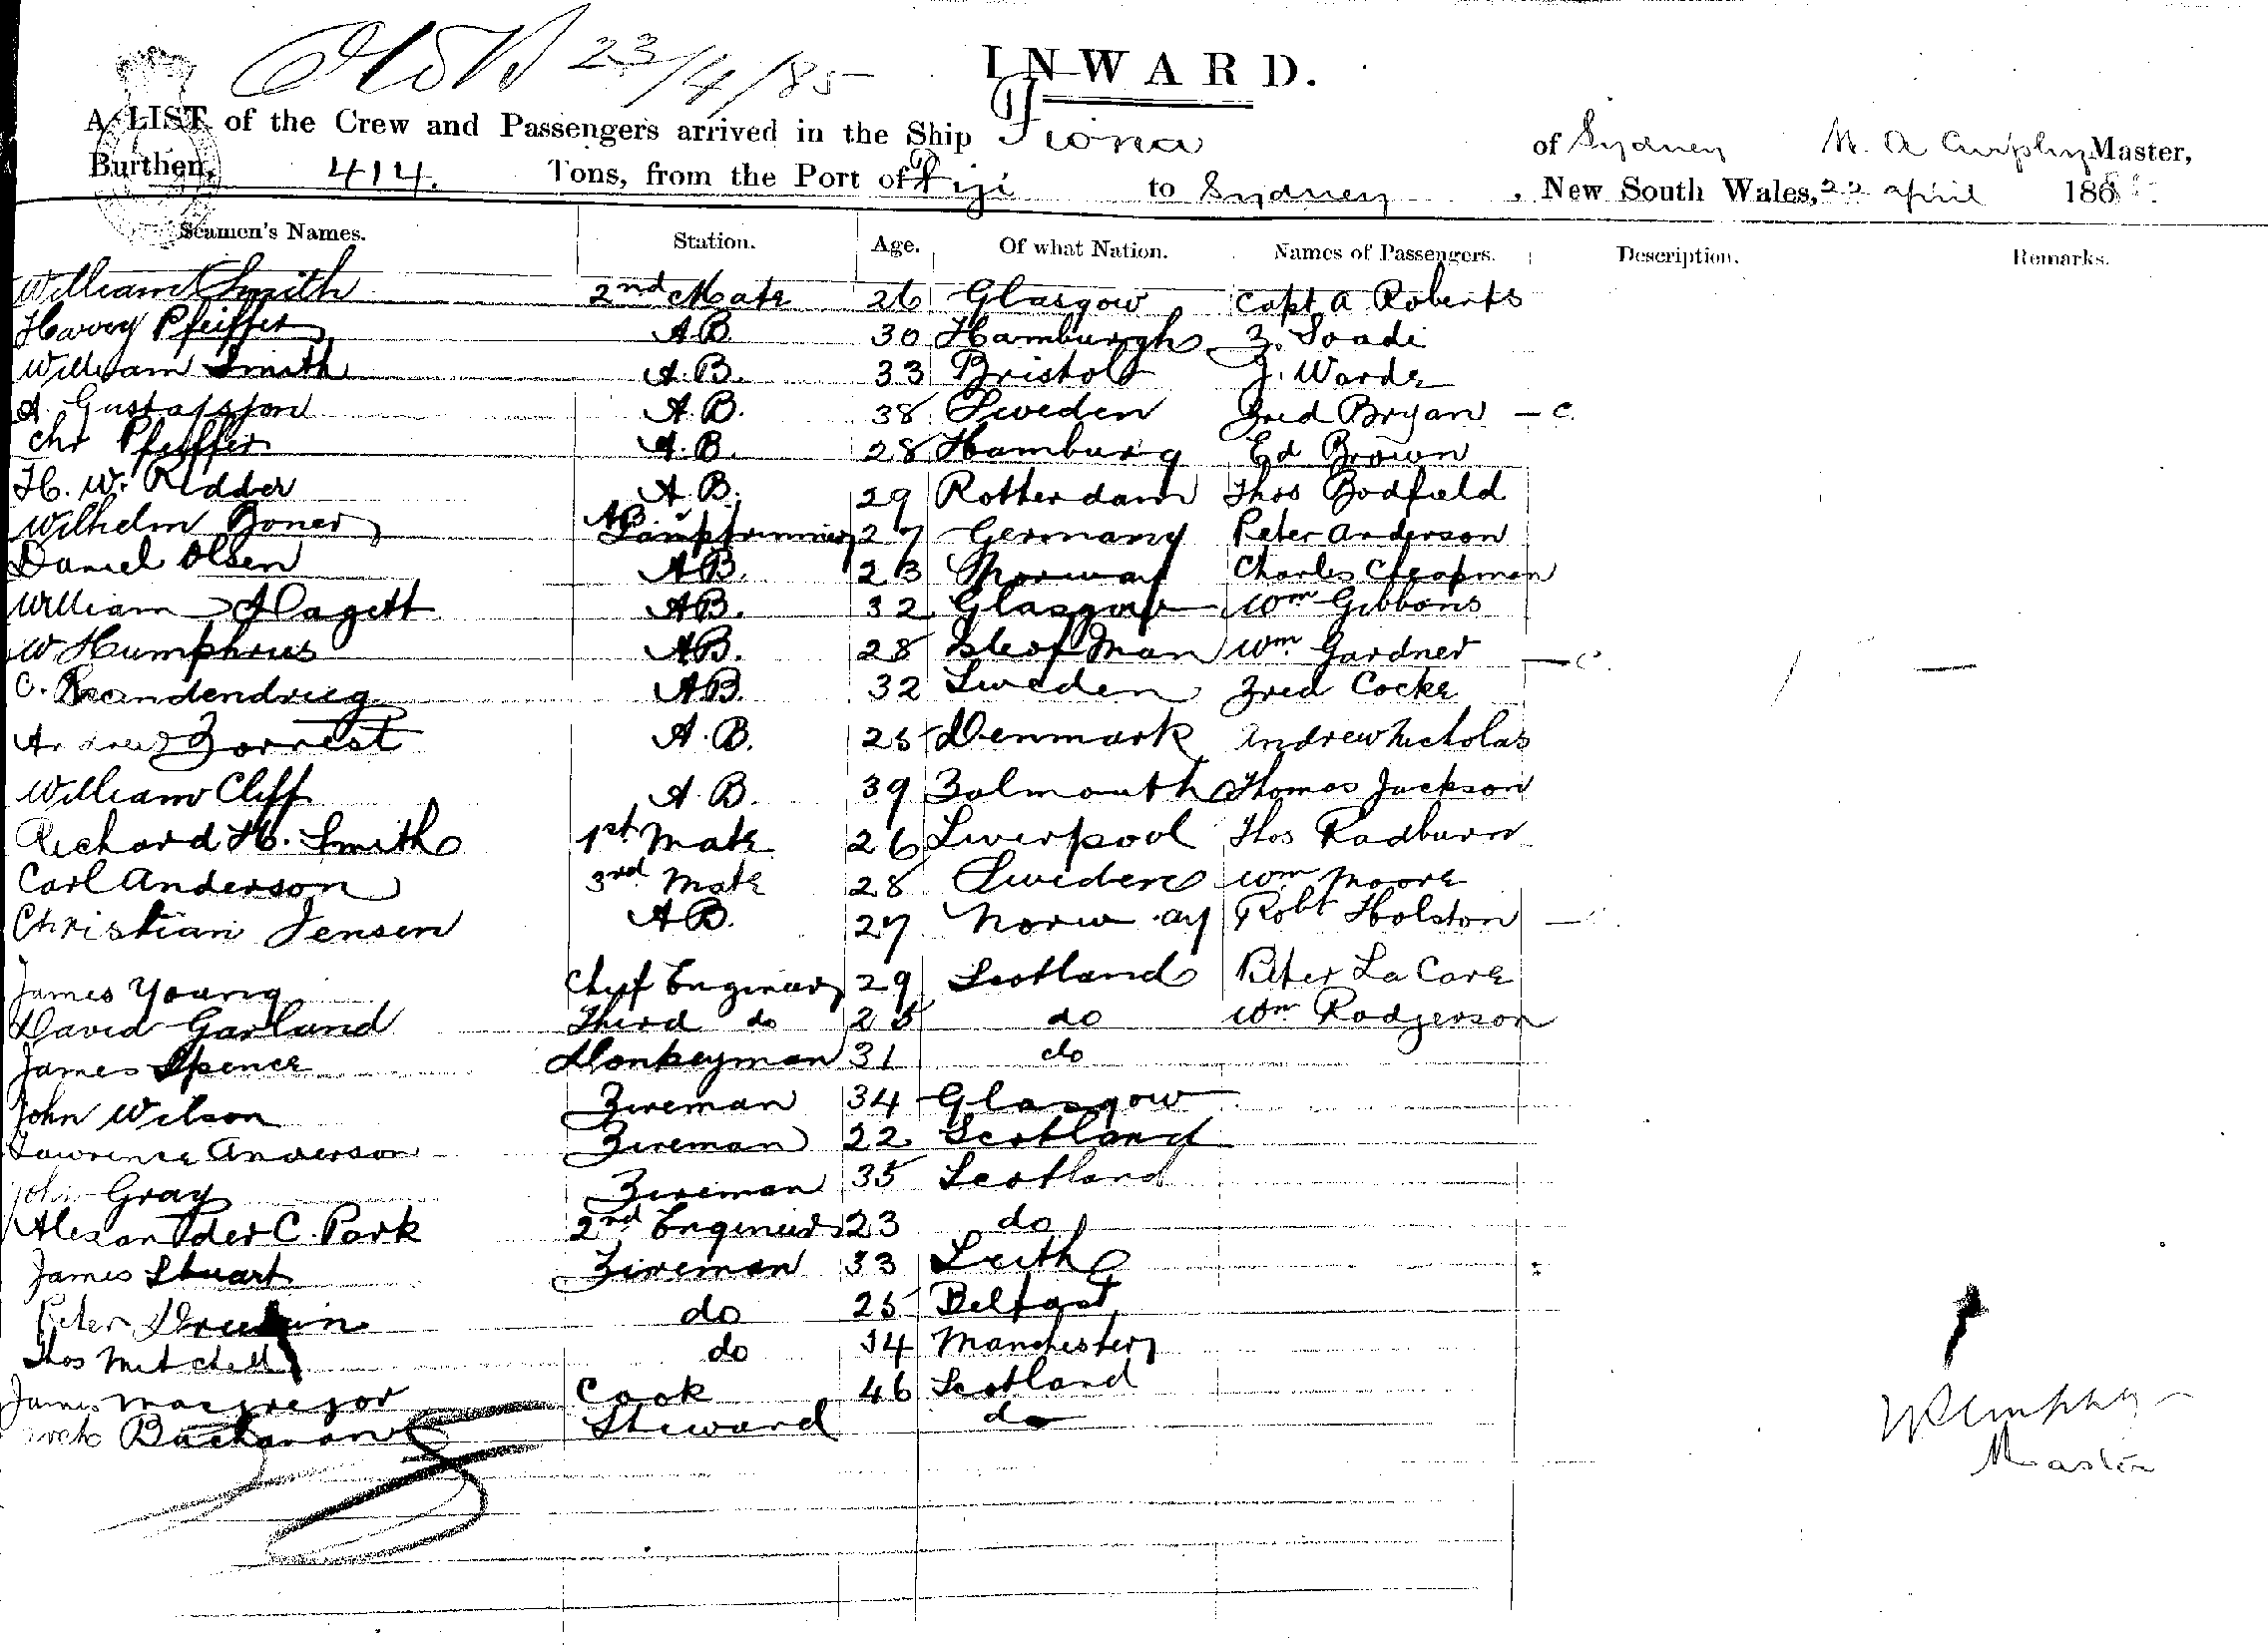 23/4/85
INWARD.
A LIST of the Crew and Passengers arrived in the Ship Fiona of Sydney Master,
Burthen, 414. Tons, from the Port of Fiji to Sydney, New South Wales, 22 april 188
Seamen's Names. Station. Age. Of what Nation. Names of Passengers. Description. Remarks.
William Smith 2nd Mate 26 Glasgow Capt A Roberts
Harvey Pfeiffer A.B. 30 Hamburgh
William Smith A.B. 33 Bristol J. Warde
A. Gustafsson A.B. 38 Sweden Fred Bryan — c.
Chr Pfeiffer A.B. 28 Hamburg Ed Brown
H. W. Ridder A.B. 29 Rotterdam Thos Bodfield
Wilhelm Boner A.B. Lamptrimmer 27 Germany Peter Anderson
Daniel Olsen A.B. 23 Norway Charles Cheapman
William A.B. 32 Glasgow Wm Gibbons
W Humphries A.B. 28 Isle of Man Wm Gardner — c.
C. A.B. 32 Sweden Fred Cocke
Andrew Forrest A.B. 25 Denmark Andrew Nicholas
William Cliff A.B. 39 Falmouth Thomas Jackson
Richard H. Smith 1st Mate 26 Liverpool Thos Radburn
Carl Anderson 3rd Mate 28 Sweden Wm Moore
Christian Jensen A.B. 27 Norway Robt Holston —
James Young Chief Engineer 29 Scotland Peter La Care
David Garland Third do 25 do Wm Rodgerson
James Spence Donkeyman 31 do
John Wilson Fireman 34 Glasgow
Lawrence Anderson Fireman 22 Scotland
John Gray Fireman 35 Scotland
Alexander C. Park 2nd Engineer 23 do
James Stuart Fireman 33 Leith
Peter do 25 Belfast
Thos Mitchell do 34 Manchester
James Macgregor Cook 46 Scotland
Buchanan Steward do
Master